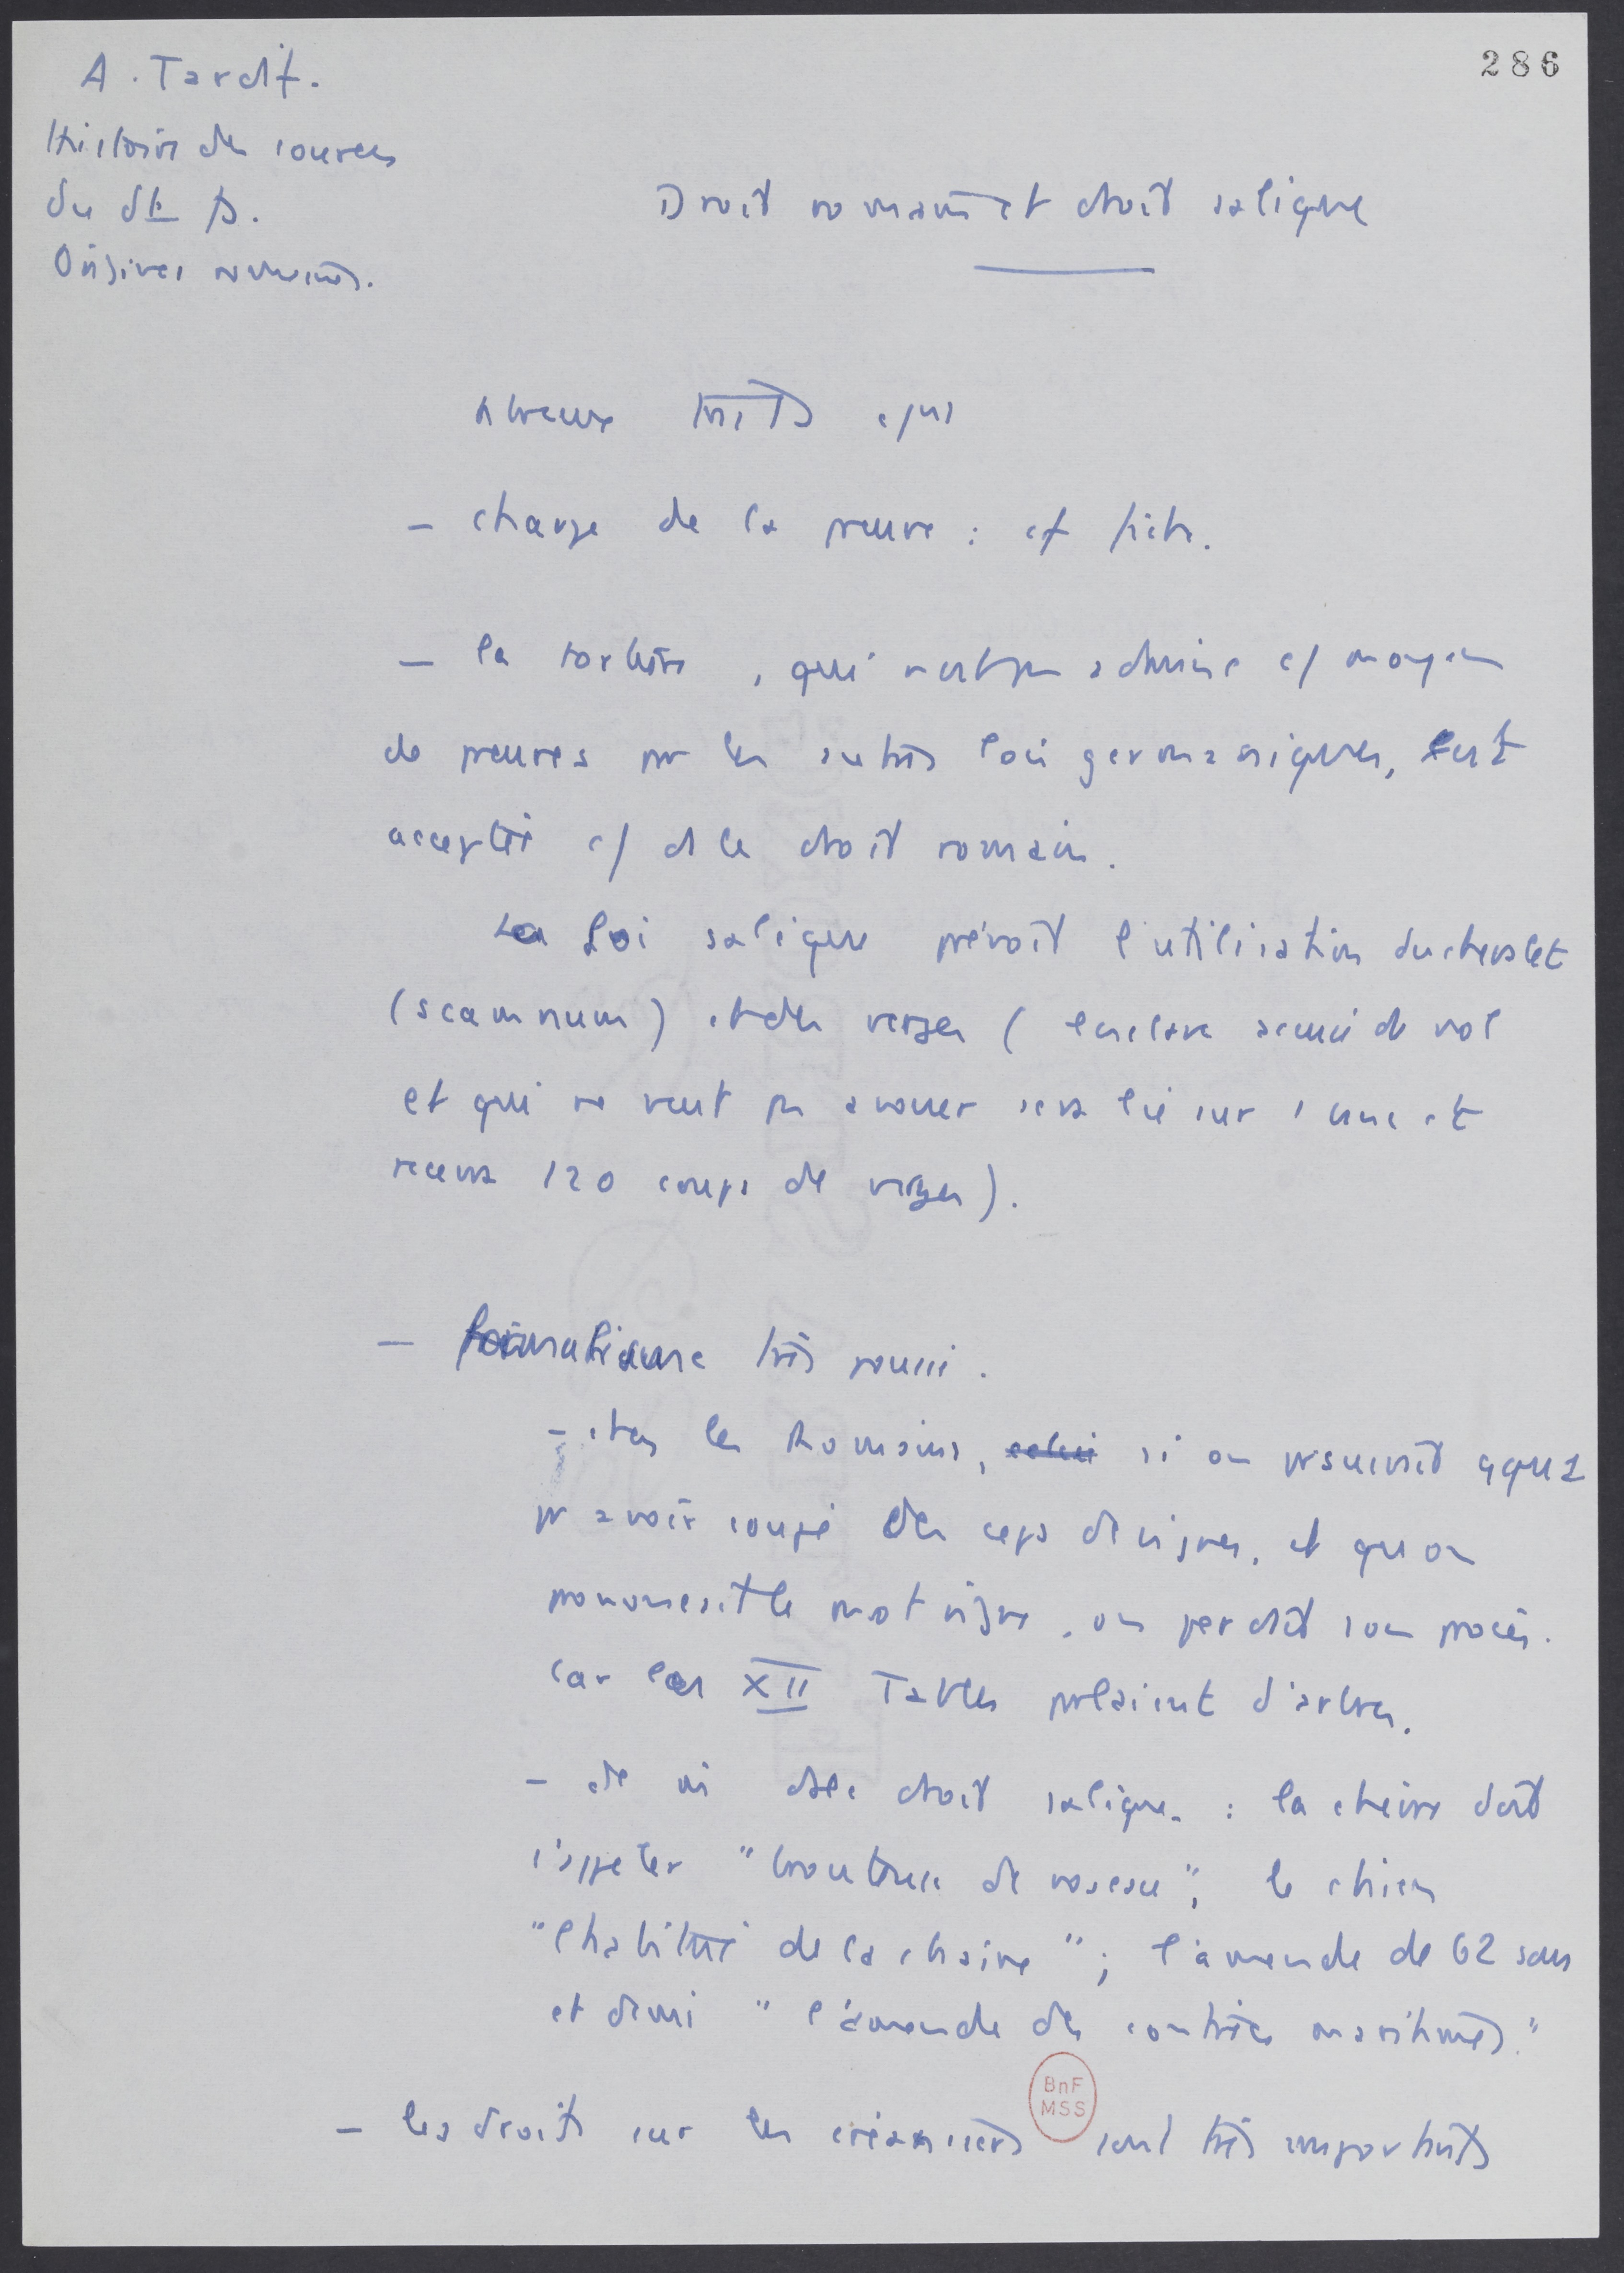 A. Tardif.
286
Histoire des sources
du dt fs.
Origines romaines.
Droit romain et droit salique
Nbreux traits
- charge de la preuve : cf fiche.
- la torture, qui n'est pas admise c/ moyen
de preuves par les autres lois germaniques, est
acceptée c/ ds le droit romain.
La loi salique prévoit l'utilisation du chevalet
(scamnum) et des verges (l'esclave accusé de vol
et qui ne veut pas avouer sera lié sur et
recevra 120 coups de verges).
- formalisme très poussé.
- chez les Romains, celui si on psuivait qqu1
pr avoir coupé des ceps de vignes, et qu'on
prononçait le mot vigne, on perdait son procès.
car les XII Tables parlaient d'arbres.
- de m dsle droit salique : la chèvre doit
s'appeler "brouteuse de roseau"; le chien
"l'habitué de la chaine"; l'amende de 62 sous
et demi "l'amende des contrées maritimes."
- les droits sur les créanciers sont très importants
BnF
MSS